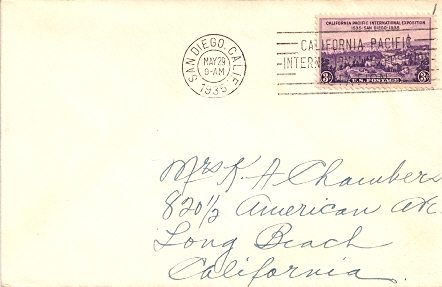 CALIFORNIA PACIFIC INTERNATIONAL EXPOSITION
1935 · SAN DIEGO · 1935
SAN DIEGO, CALIF.
MAY 29
9-AM
1935
CALIFORNIA PACIFIC
INTERN
3¢ U.S. POSTAGE 3¢
Mrs K. A Chambers
820½ American Av.
Long Beach
California